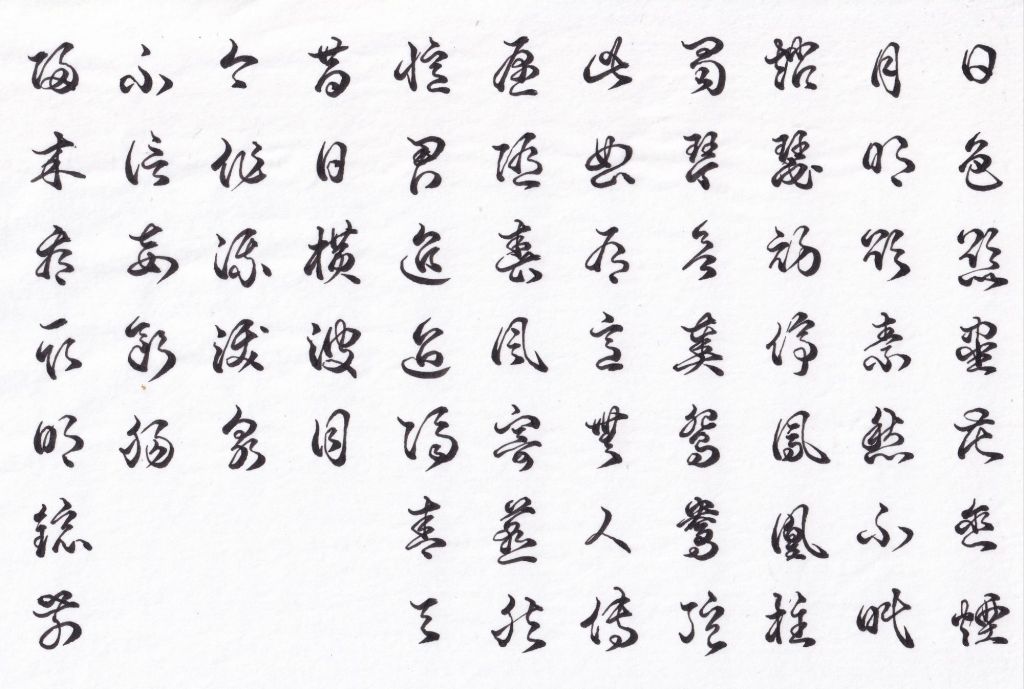 日色欲盡花含煙
月明欲素愁不眠
趙瑟初停鳳凰柱
蜀琴欲奏鴛鴦弦
此曲有意無人傳
願隨春風寄燕然
憶君迢迢隔青天
昔日橫波目
今作流淚泉
不信妾斷腸
歸來看取明鏡前